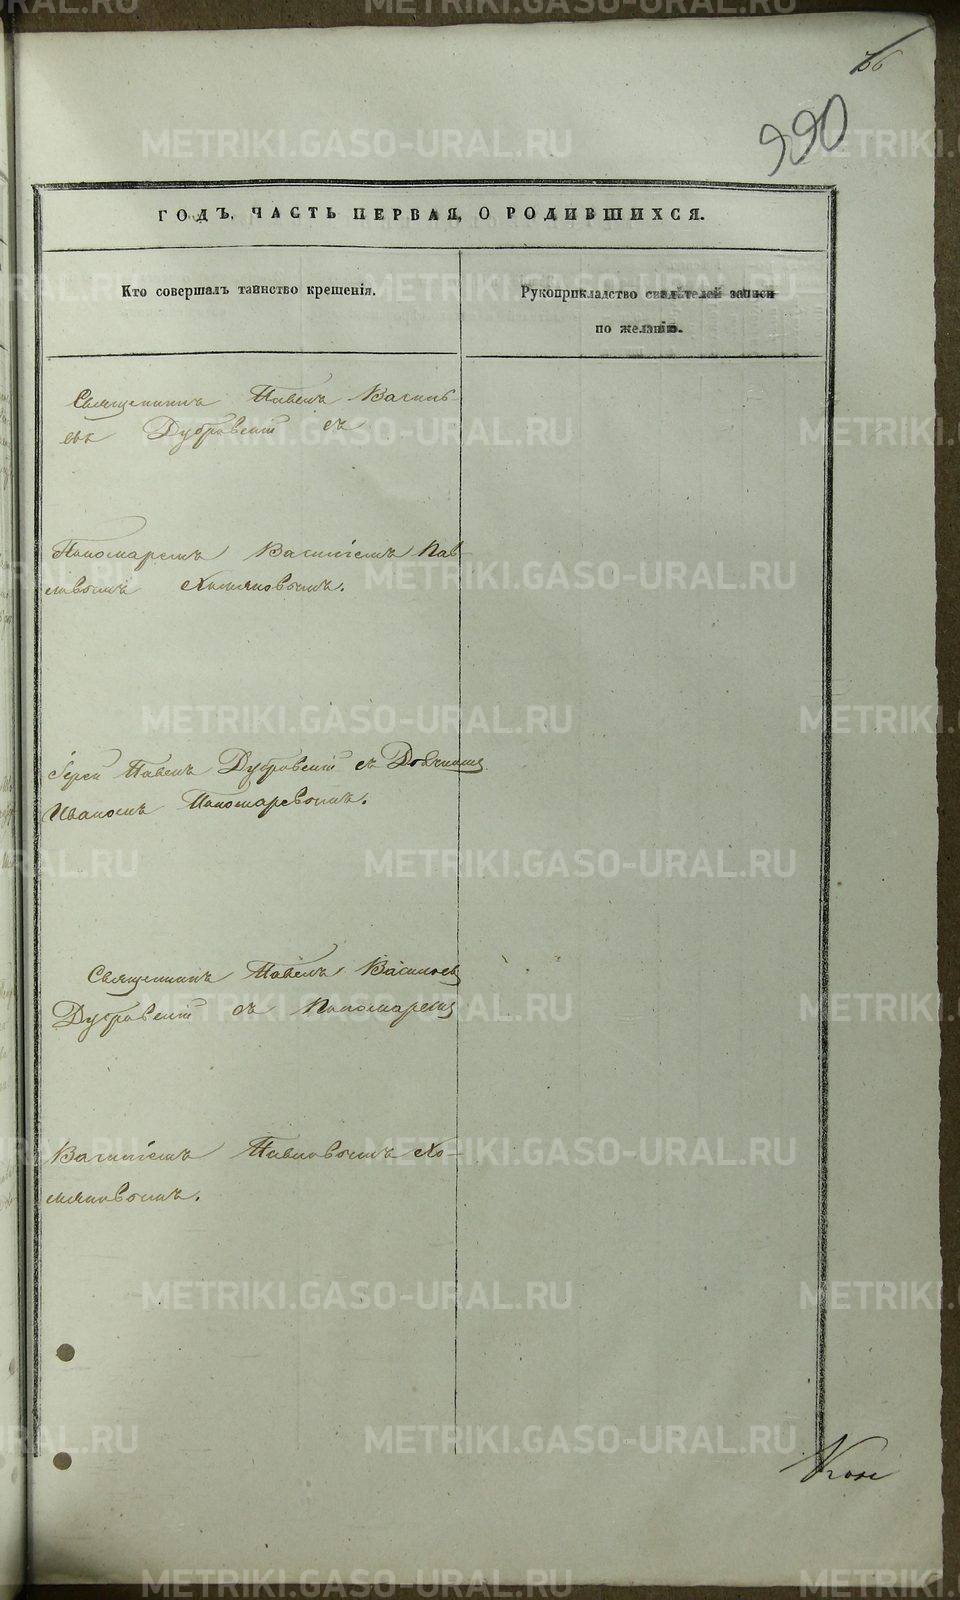 36
990
ГОДЪ, ЧАСТЬ ПЕРВАЯ, О РОДИВШИХСЯ.
Кто совершалъ таинство крещенія.
Рукоприкладство свидѣтелей записи
по желанію.
Священникъ Павелъ Василь-
евъ Дубровскій съ
Пономаремъ Василіемъ Пав-
ловымъ Хомяковымъ.
Іерей Павелъ Дубровскій съ Дьячкомъ
Иваномъ Пономаревымъ.
Священникъ Павелъ Васильевъ
Дубровскій съ Пономаремъ
Василіемъ Павловымъ Хо-
мяковымъ.
METRIKI.GASO-URAL.RU